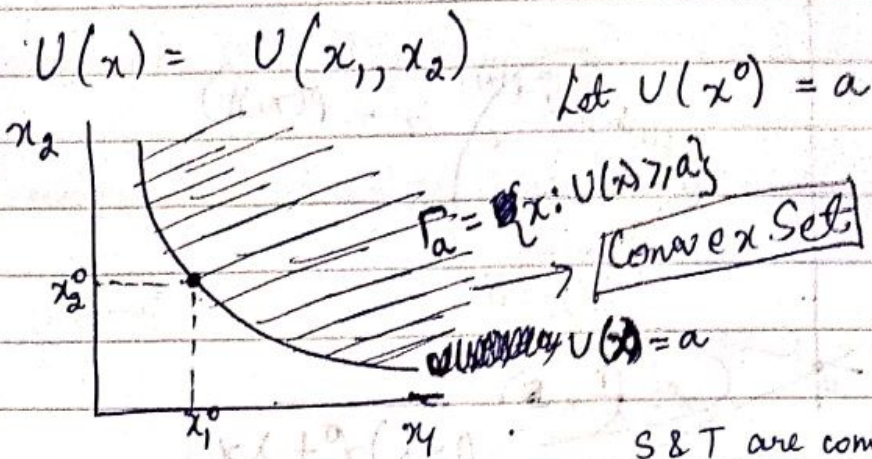 U(x) = U(x₁, x₂)
Let U(x⁰) = a
x₂
Γₐ = {x: U(x) ≥ a}
Convex Set
x₂⁰
U(x) = a
x₁⁰
x₁
S & T are con